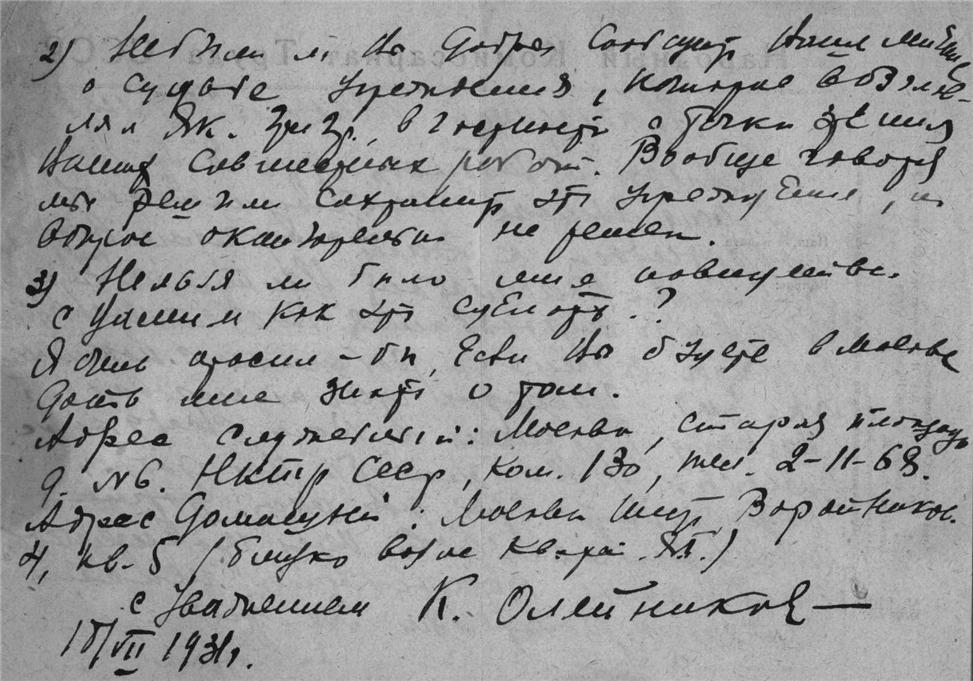 2) Не были ли бы добры сообщить Ваше мнение
о судьбе учреждения, которое возглав-
лял Як. в частности с точки зрения
наших совместных работ. Вообще говоря
мы решили сохранить это учреждение, но
вопрос окончательно не решен.
3) Нельзя ли было мне повидаться
с Вами и как это сделать?
Я очень просил-бы, если Вы будете в Москве
дать мне знать о том.
Адрес служебный: Москва, Старая площадь
д. №6. НКТр СССР, ком. 130, тел. 2-11-63.
Адрес домашний: Москва
4, кв. 5 (близко возле
с уважением К. Олейников
1931г.